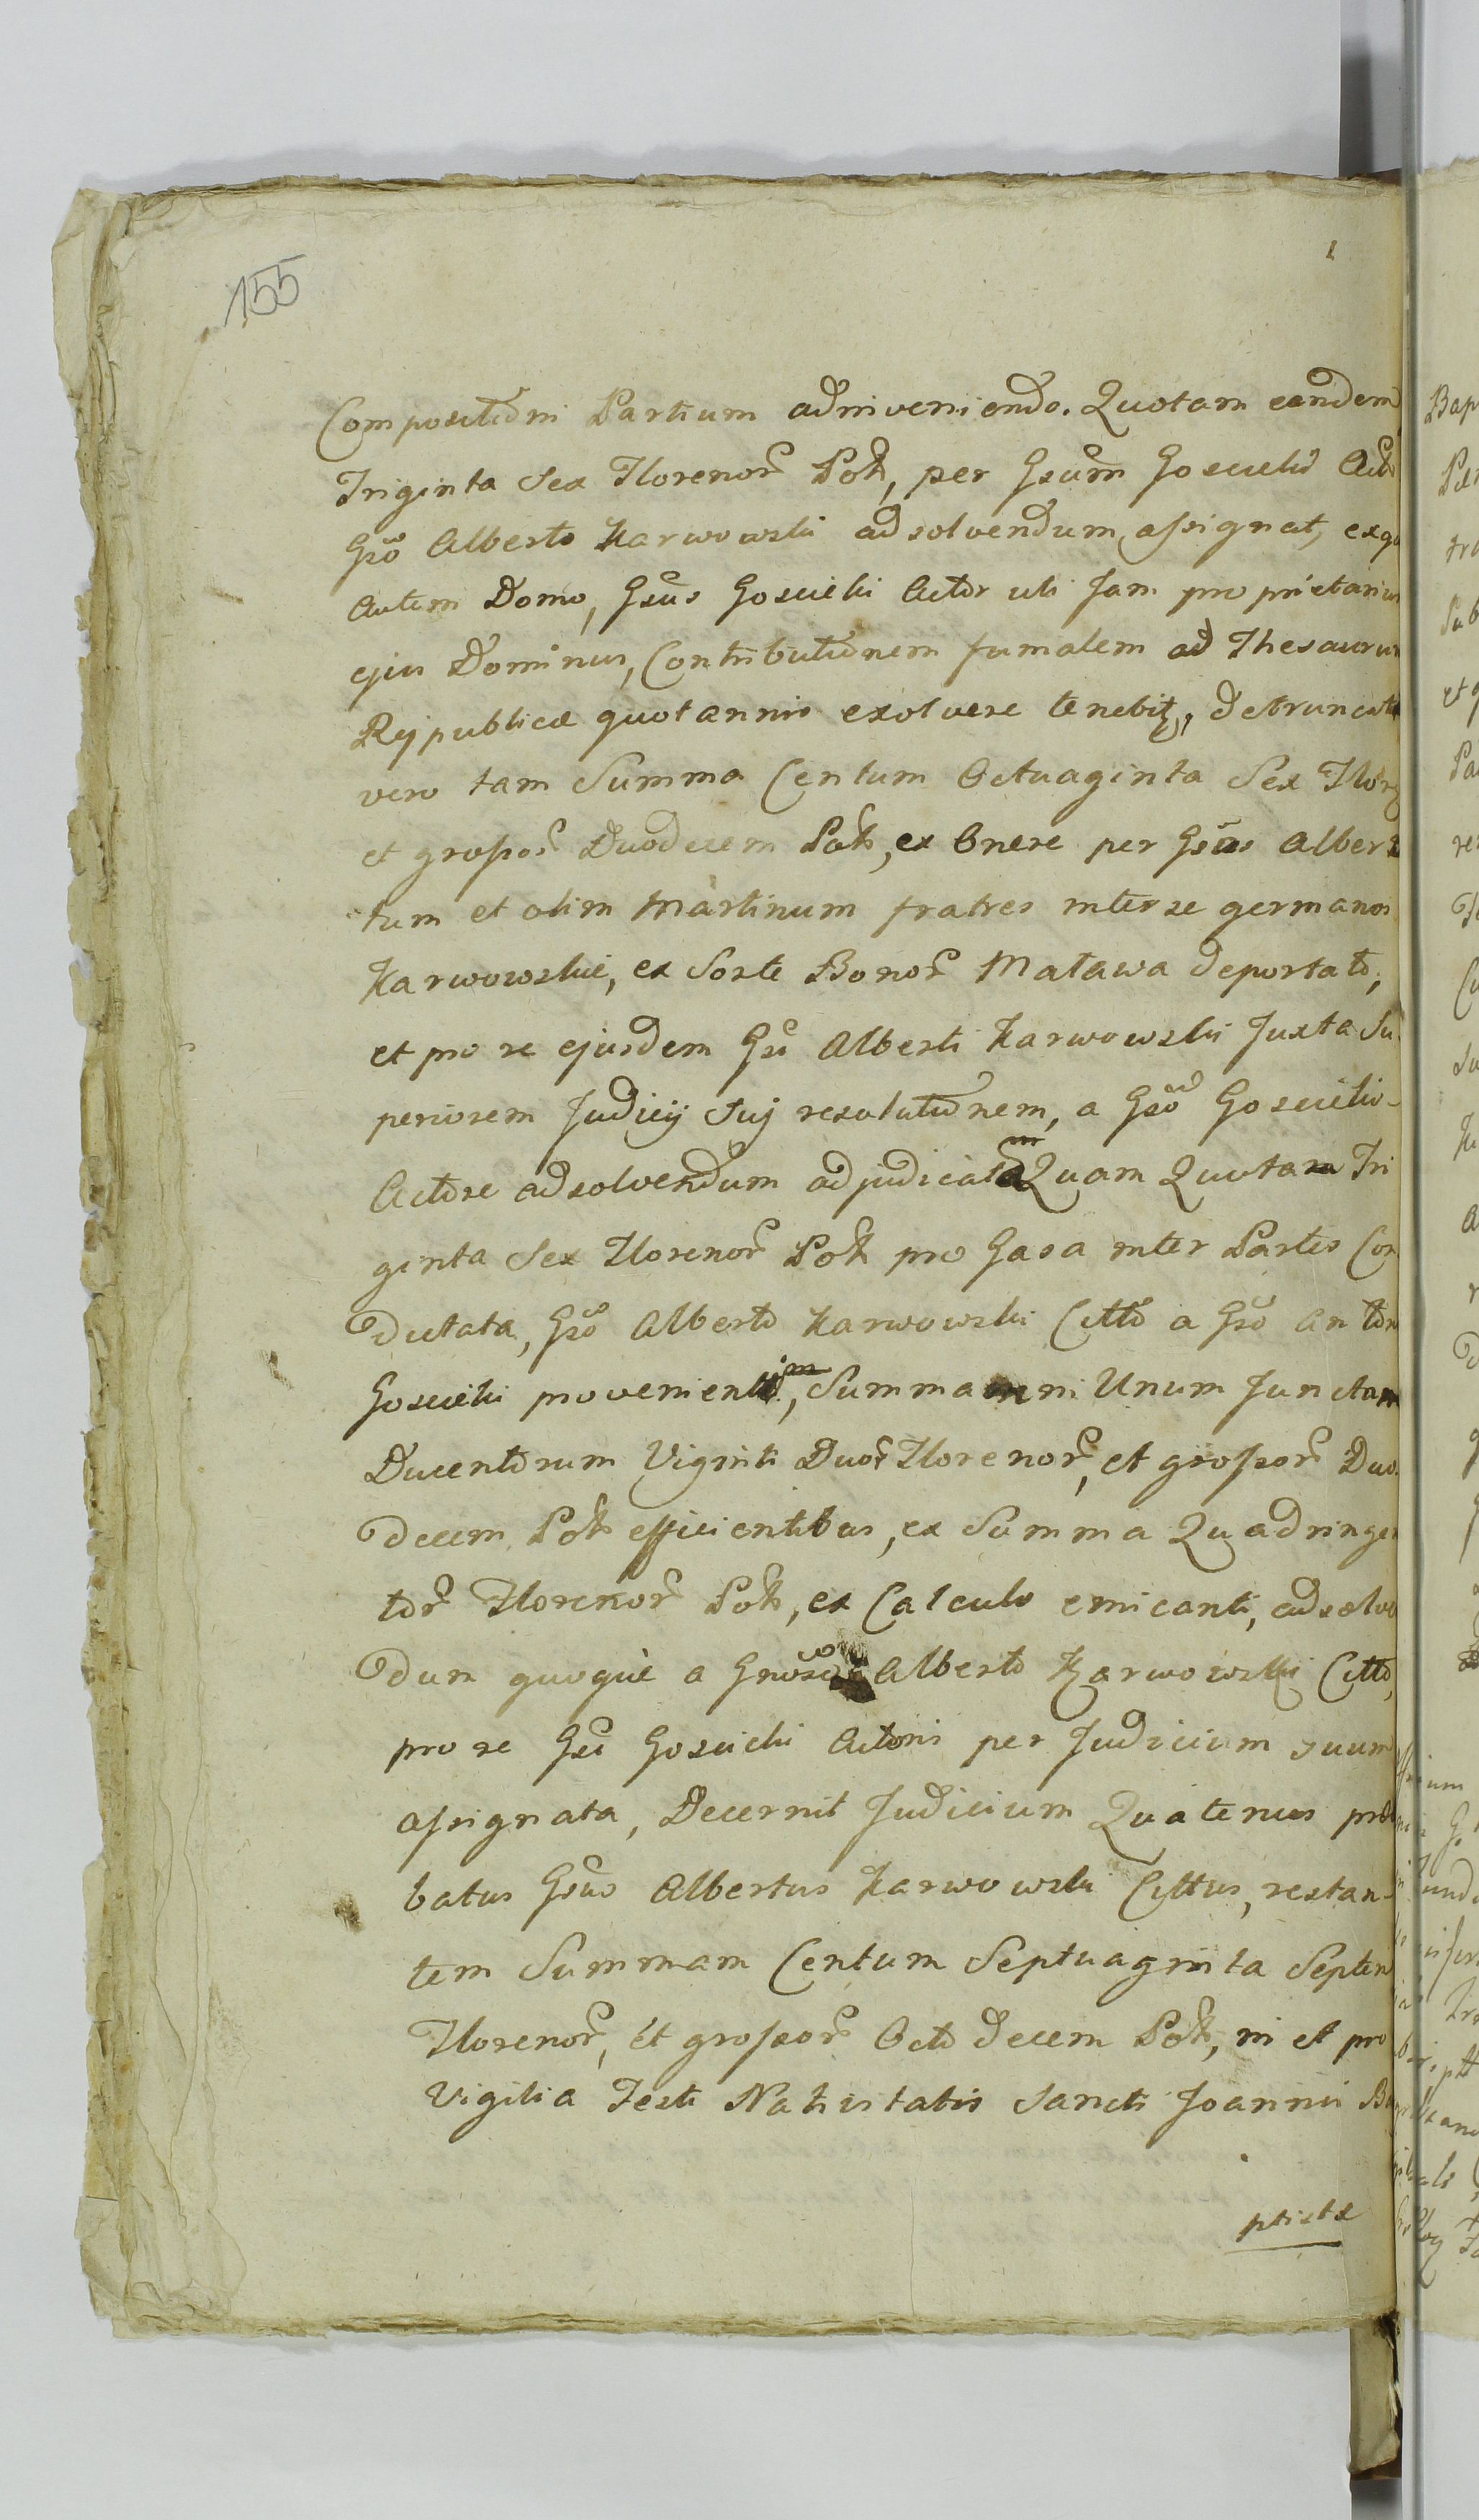 155
Compositioni Partium adinveniendo. Quotam eandem
Triginta Sex Florenor Poł, per Gsum Goscicki Act
Gso Alberto Karwowski adsolvendum assignat, exq
Autem Domo, Gsus Goscicki Actor uti Jam proprietarius
ejus Dominus, Contributionem fumalem ad Thesaurum
Rejpublicæ quotannis exolvere tenebit, detruncata
vero tam Summa Centum Octuaginta Sex Flor
et grossor Duodecem Pol, ex Onere per Gsos Alber
tum et olim Martinum fratres inter se germanos
Karwowskie, ex Sorte Bonor Maława deportato,
et pro re ejusdem Gsi Alberti Karwowski Juxta Su
periorem Judicij Suj resolutionem, a Gso Goscicki
Actore adsolvendum adjudicatam Quam Quotam Tri
ginta Sex Florenor Pol pro Gasa inter Partes Con
dictata, Gso Alberto Karwowski Citto a Gso Anton
Goscicki provenienti, Summam in Unum Junctam
Ducentorum Viginti Duor Florenor, et grossor Duo
decem Pol efficientibus, ex Summa Quadringen
tor Florenor Pol, ex Calculo emicanti, adsolven
dum quoque a Gnoso Alberto Karwowski Citto,
pro re Gsi Goscicki Actoris per Judicium suum
assignata, Decernit Judicium Quatenus præ
batus Gsus Albertus Karwowski Cittus, restan-
tem Summam Centum Septuaginta Septem
Florenor, et grossor Octodecem Pol, in et pro
Vigilia Festi Nativitatis Sancti Joannis Ba
ptistæ